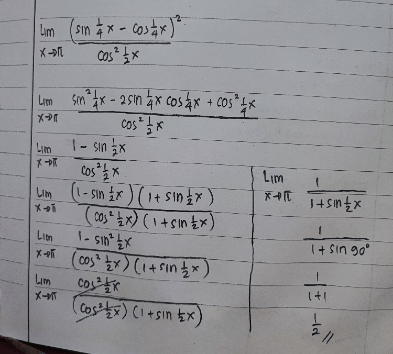 Lim x→π (sin 1/4 x - cos 1/4 x)² / cos² 1/2 x
Lim x→π sin² 1/4 x - 2 sin 1/4 x cos 1/4 x + cos² 1/4 x / cos² 1/2 x
Lim x→π 1 - sin 1/2 x / cos² 1/2 x
Lim x→π (1 - sin 1/2 x) (1 + sin 1/2 x) / (cos² 1/2 x) (1 + sin 1/2 x)
Lim x→π 1 - sin² 1/2 x / (cos² 1/2 x) (1 + sin 1/2 x)
Lim x→π cos² 1/2 x / (cos² 1/2 x) (1 + sin 1/2 x)
Lim x→π 1 / 1 + sin 1/2 x
1 / 1 + sin 90°
1 / 1+1
1/2 //